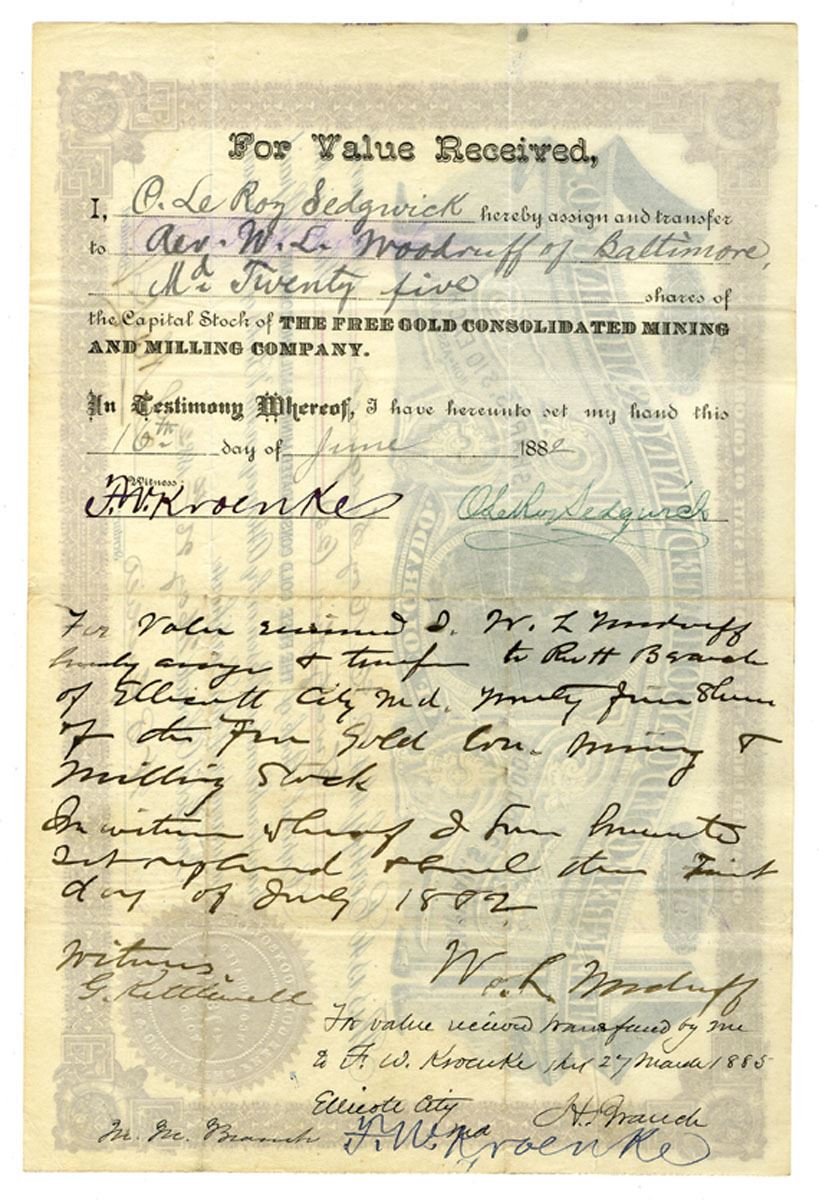 For Value Received,
I, O. Le Roy Sedgwick hereby assign and transfer
to Rev. W. L. Woodruff of Baltimore,
Md Twenty five shares of
the Capital Stock of THE FREE GOLD CONSOLIDATED MINING
AND MILLING COMPANY.
In Testimony Whereof, I have hereunto set my hand this
16th day of June 1882
Witness:
F. W. Kroenke O Le Roy Sedgwick
For Value received I. W. L Woodruff
hereby assign & transfer to Branch
of Ellicott City Md. Twenty five Shares
of the Free Gold Con. Mining &
Milling Stock
In witness whereof I have hereunto
set my hand & seal this First
day of July 1882
Witness
G. Kettlewell W. L. Woodruff
For value received transfered by me
to F. W. Kroenke this 27 March 1885
Ellicott City H. Branch
Md
M. M. Branch F. W. Kroenke